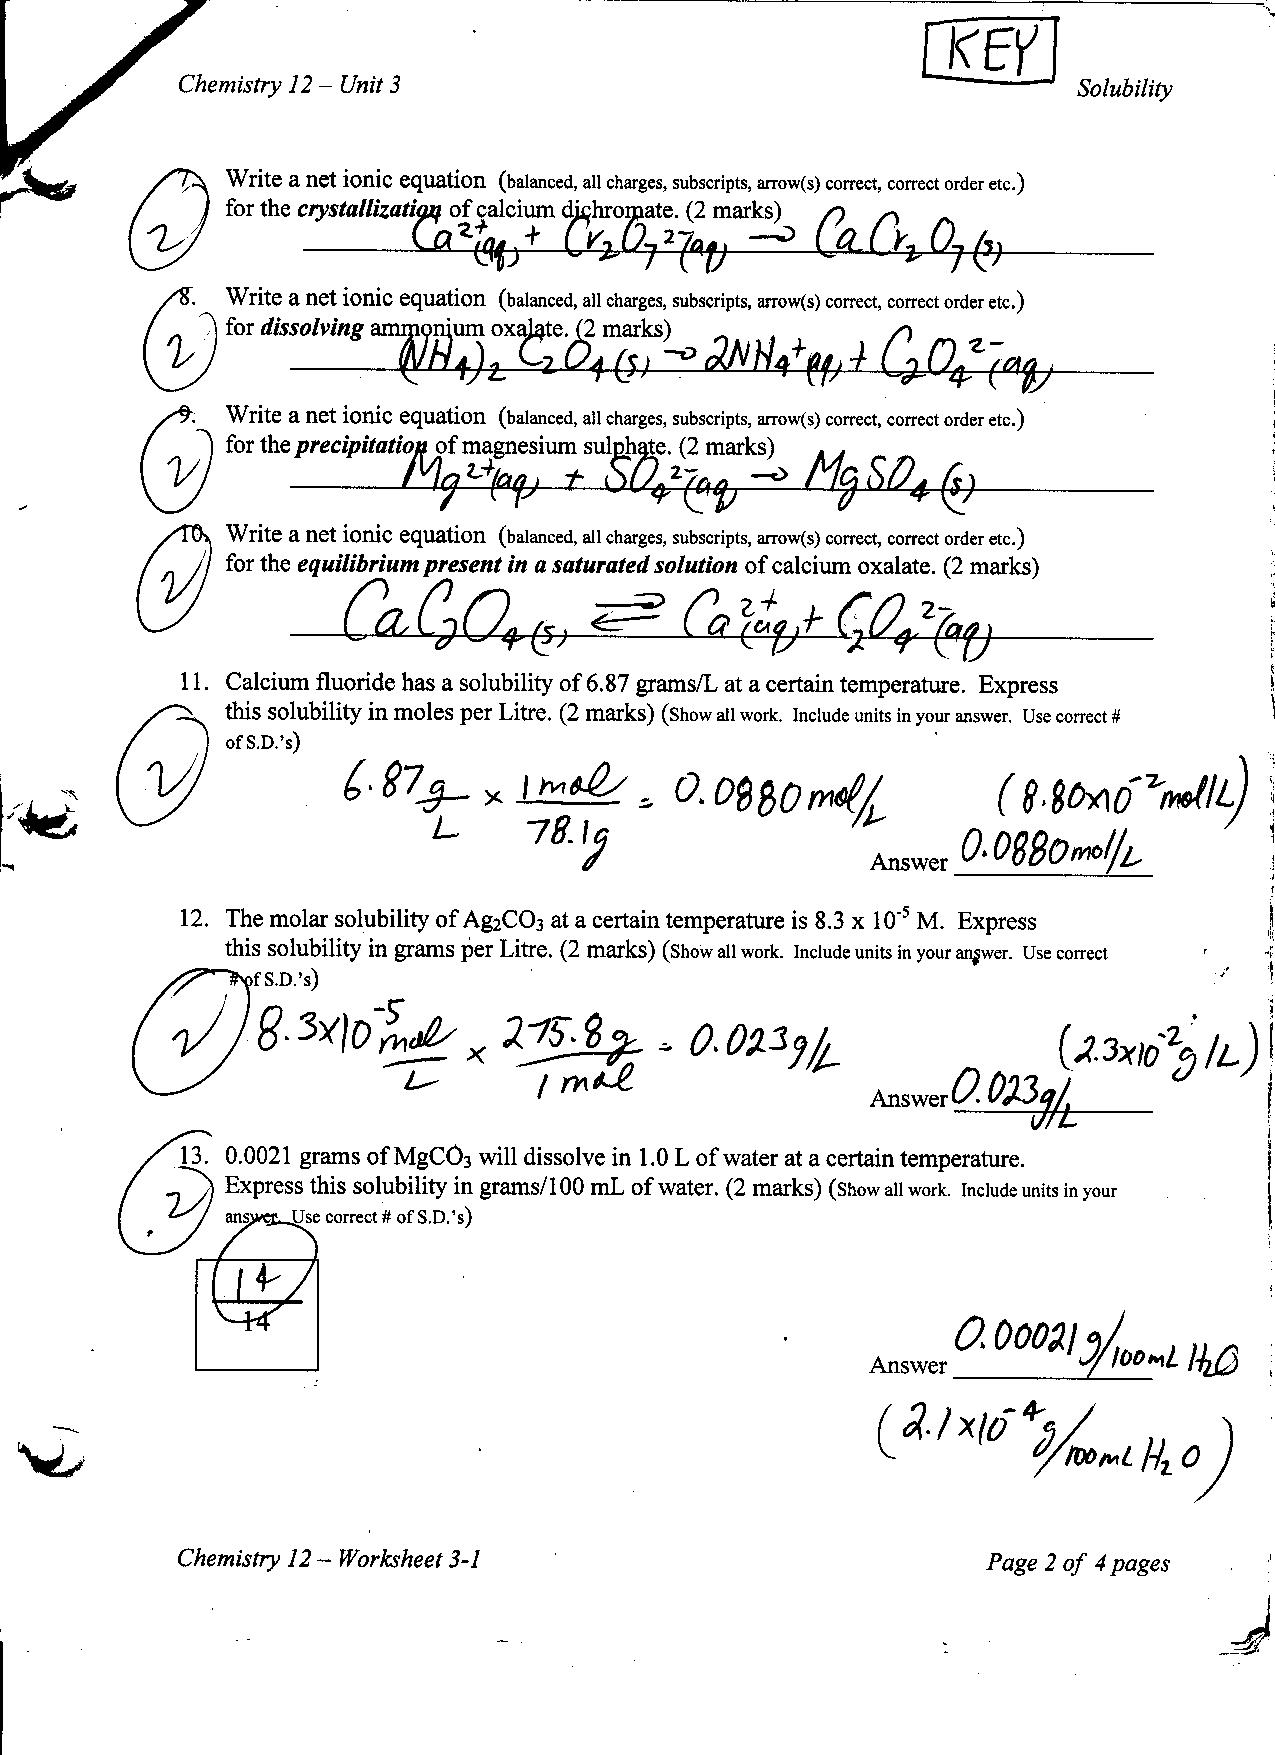 KEY
Chemistry 12 – Unit 3
Solubility
7. Write a net ionic equation (balanced, all charges, subscripts, arrow(s) correct, correct order etc.)
for the crystallization of calcium dichromate. (2 marks)
Ca²⁺(aq) + Cr₂O₇²⁻(aq) → CaCr₂O₇(s)
2
8. Write a net ionic equation (balanced, all charges, subscripts, arrow(s) correct, correct order etc.)
for dissolving ammonium oxalate. (2 marks)
(NH₄)₂C₂O₄(s) → 2NH₄⁺(aq) + C₂O₄²⁻(aq)
2
9. Write a net ionic equation (balanced, all charges, subscripts, arrow(s) correct, correct order etc.)
for the precipitation of magnesium sulphate. (2 marks)
Mg²⁺(aq) + SO₄²⁻(aq) → MgSO₄(s)
2
10. Write a net ionic equation (balanced, all charges, subscripts, arrow(s) correct, correct order etc.)
for the equilibrium present in a saturated solution of calcium oxalate. (2 marks)
2
CaC₂O₄(s) ⇌ Ca²⁺(aq) + C₂O₄²⁻(aq)
11. Calcium fluoride has a solubility of 6.87 grams/L at a certain temperature. Express
this solubility in moles per Litre. (2 marks) (Show all work. Include units in your answer. Use correct #
of S.D.'s)
2
6.87 g/L × 1 mol/78.1g = 0.0880 mol/L (8.80x10⁻² mol/L)
Answer 0.0880 mol/L
12. The molar solubility of Ag₂CO₃ at a certain temperature is 8.3 x 10⁻⁵ M. Express
this solubility in grams per Litre. (2 marks) (Show all work. Include units in your answer. Use correct
# of S.D.'s)
2
8.3x10⁻⁵ mol/L × 275.8g/1 mol = 0.023g/L (2.3x10⁻² g/L)
Answer 0.023g/L
13. 0.0021 grams of MgCO₃ will dissolve in 1.0 L of water at a certain temperature.
Express this solubility in grams/100 mL of water. (2 marks) (Show all work. Include units in your
answer. Use correct # of S.D.'s)
2
14
14
Answer 0.00021 g/100mL H₂O
(2.1x10⁻⁴ g/100mL H₂O)
Chemistry 12 – Worksheet 3-1
Page 2 of 4 pages